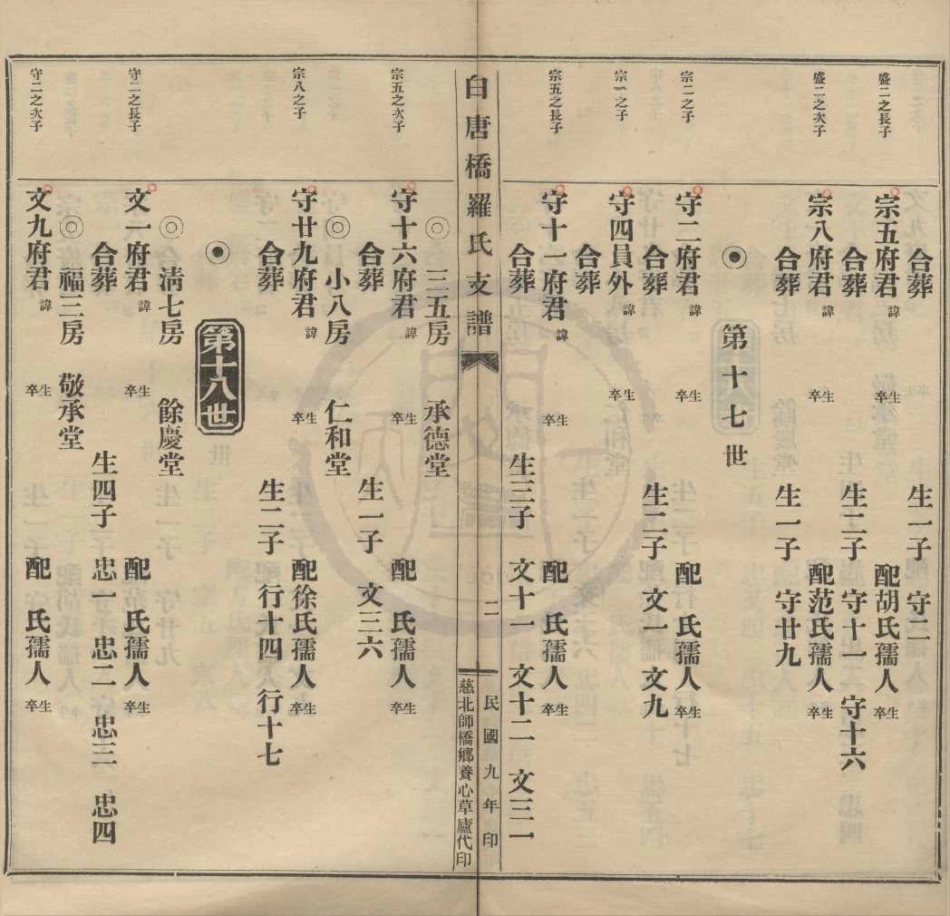 合葬 生一子 守二
盛二之長子
宗五府君 諱 生卒 配胡氏孺人 生卒
合葬 生二子 守十一 守十六
盛二之次子
宗八府君 諱 生卒 配范氏孺人 生卒
合葬 生一子 守廿九
第十七世
宗二之子
守二府君 諱 生卒 配 氏孺人 生卒
合葬 生二子 文一 文九
宗一之子
守四員外 諱 生卒
合葬
宗五之長子
守十一府君 諱 生卒 配 氏孺人 生卒
合葬 生三子 文十一 文十二 文三一
白唐橋羅氏支譜 二 民國九年印
慈北師橋鄉養心草廬代印
◎三五房 承德堂
宗五之次子
守十六府君 諱 生卒 配 氏孺人 生卒
合葬 生一子 文三六
◎小八房 仁和堂
宗八之子
守廿九府君 諱 生卒 配徐氏孺人 生卒
合葬 生二子 行十四 行十七
第十八世
◎清七房 餘慶堂
守二之長子
文一府君 諱 生卒 配 氏孺人 生卒
合葬 生四子 忠一 忠二 忠三 忠四
◎福三房 敬承堂
守二之次子
文九府君 諱 生卒 配 氏孺人 生卒